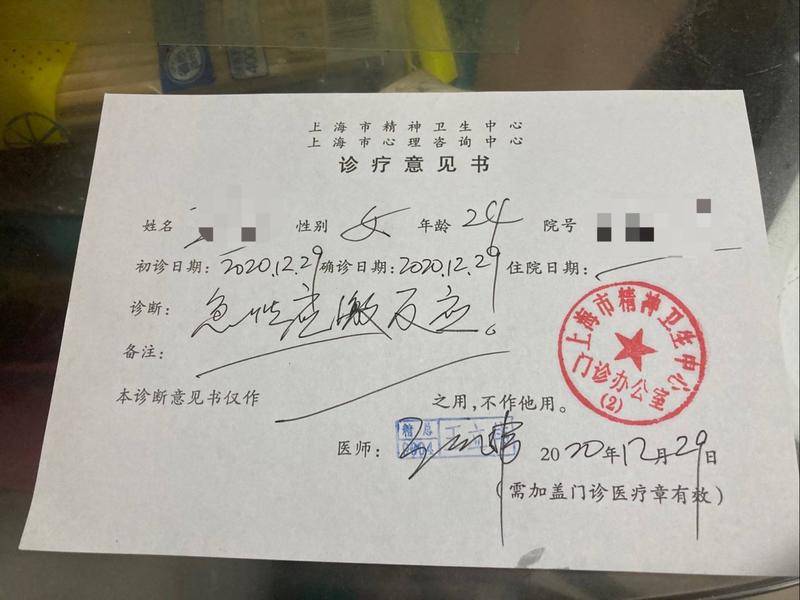 上海市精神卫生中心
上海市心理咨询中心
诊疗意见书
姓名 性别 女 年龄 24 院号
初诊日期: 2020.12.29 确诊日期: 2020.12.29 住院日期:
诊断: 急性应激反应。
备注:
本诊断意见书仅作 之用,不作他用。
医师: 2020年12月29日
(需加盖门诊医疗章有效)
上海市精神卫生中心
门诊办公室
(2)